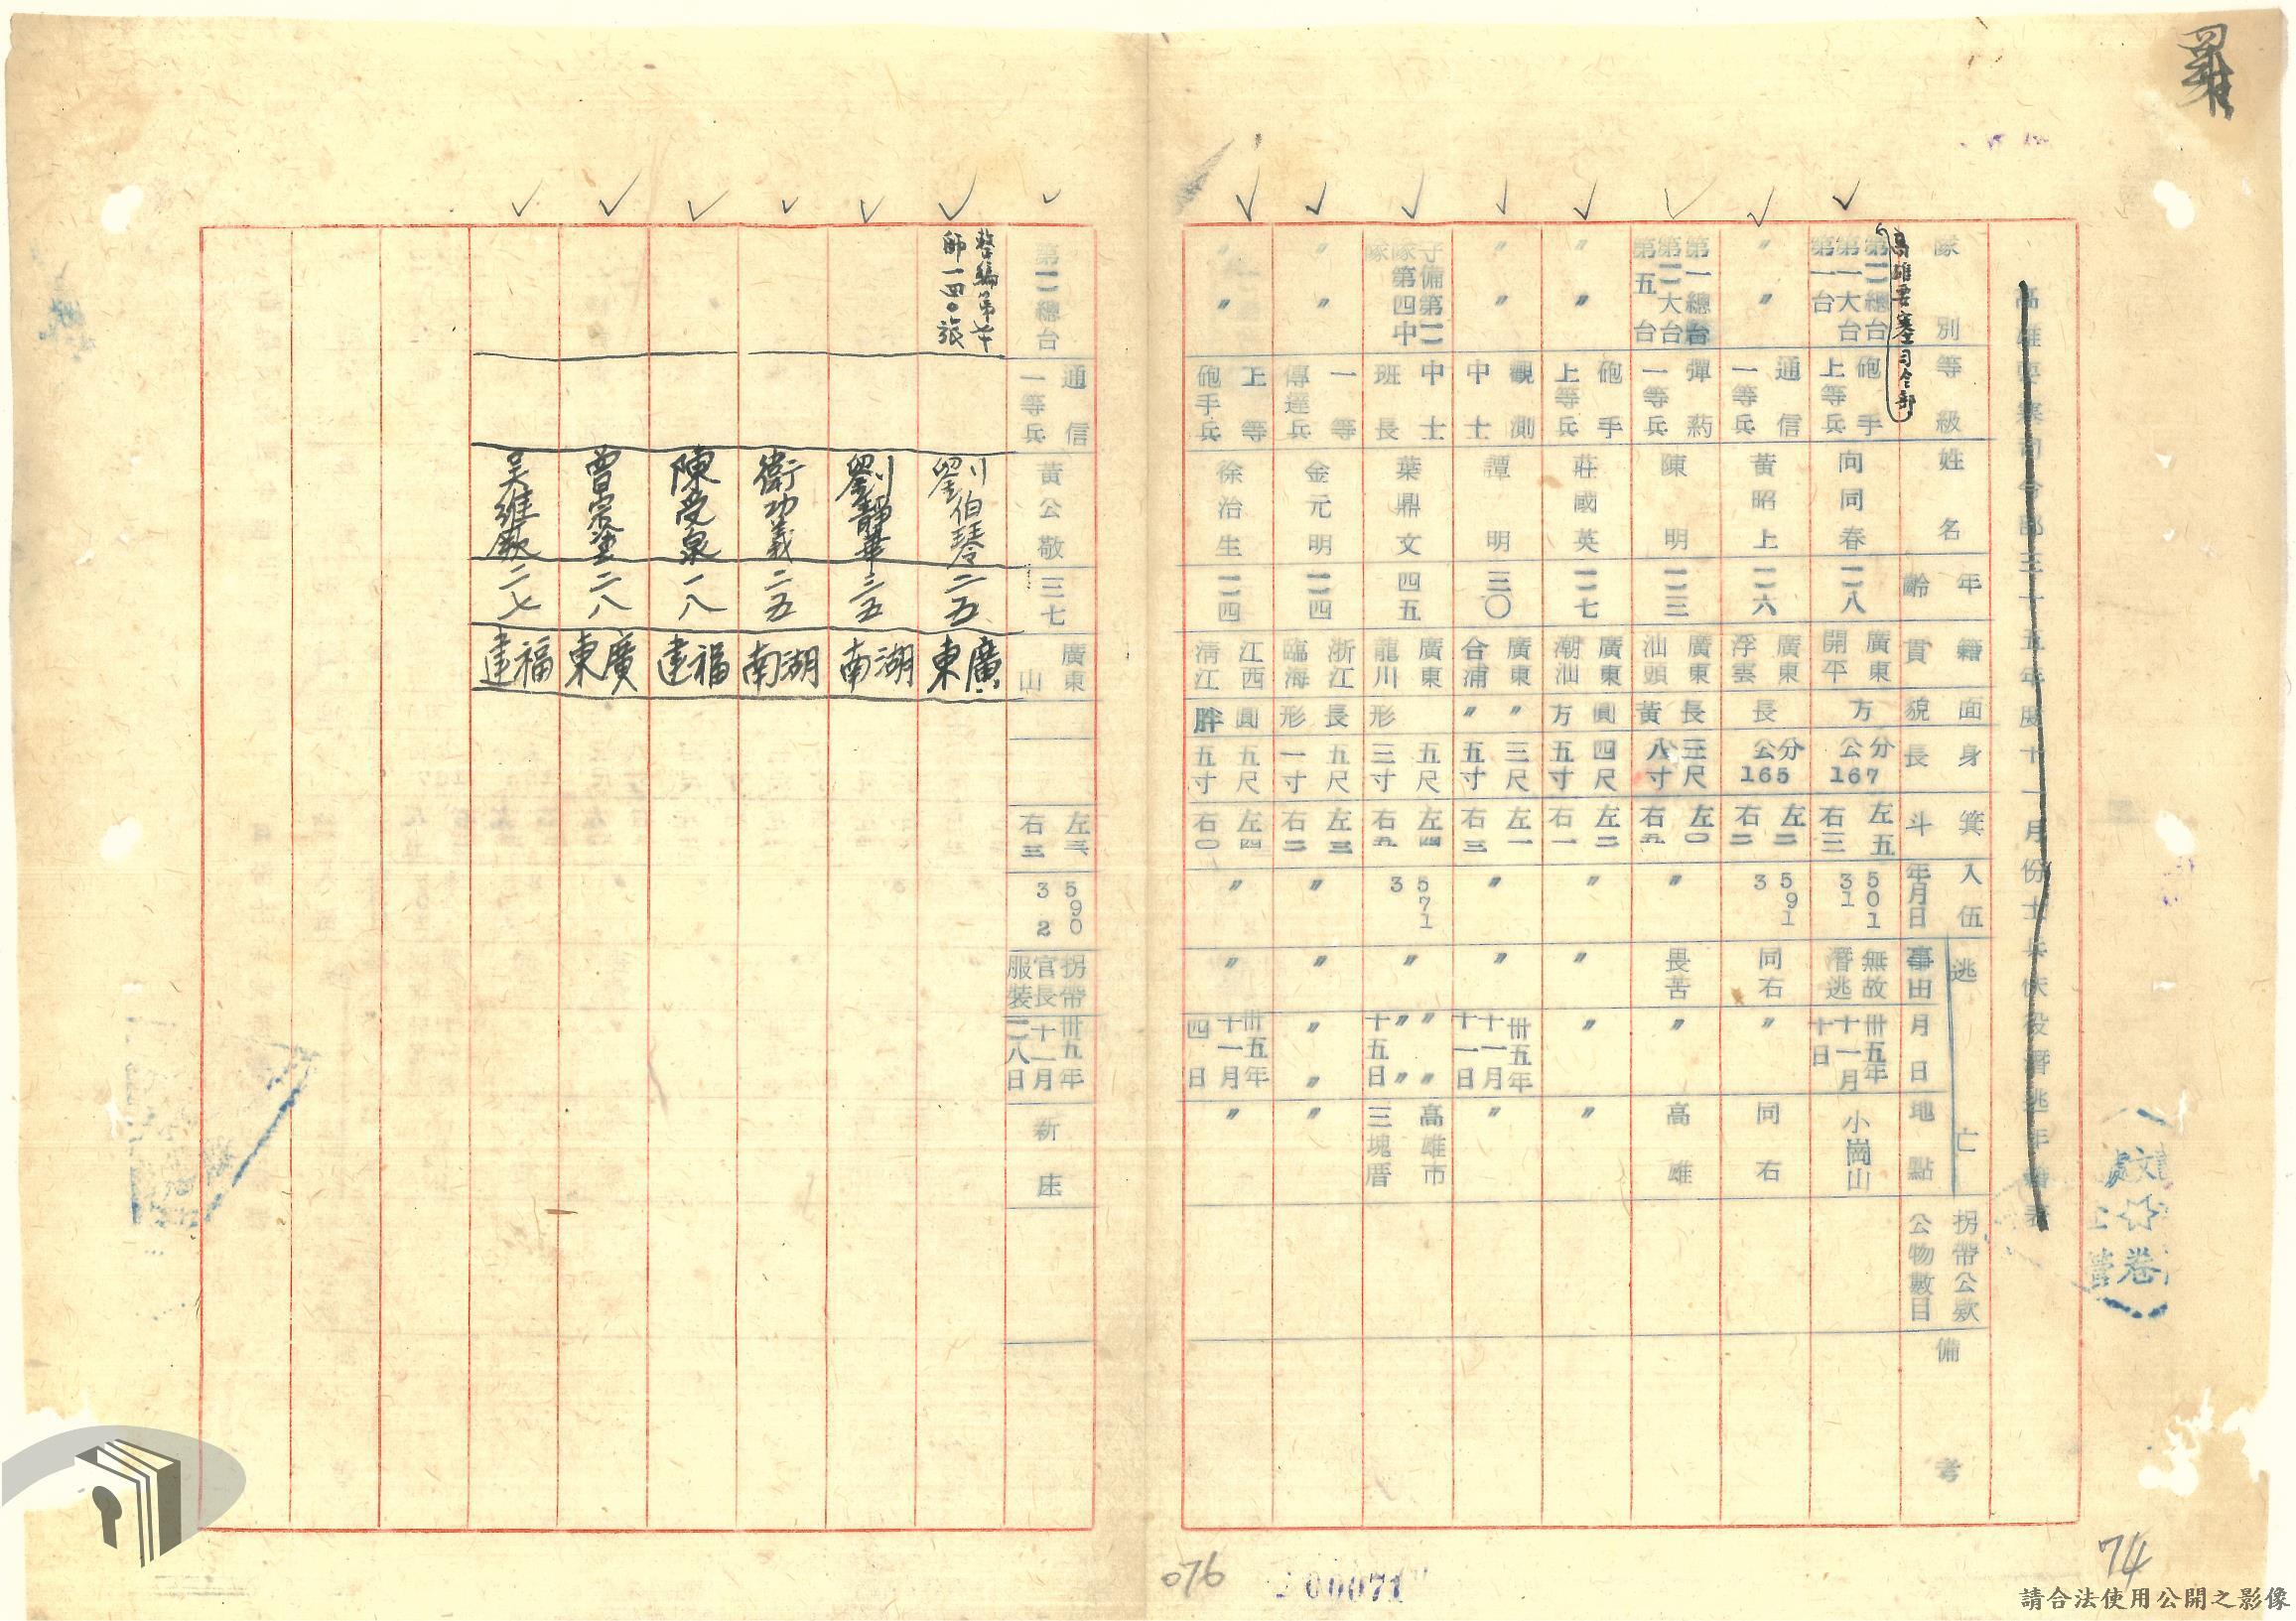 羅
高雄要塞司令部三十五年度十一月份士兵伕役潛逃年籍表
隊別
等級
姓名
年齡
籍貫
面貌
身長
箕斗
入伍年月日
逃亡
事由
月日
地點
拐帶公款公物數目
備考
高雄要塞司令部
第二總台第一大台第一台
砲手上等兵
向同春
二八
廣東開平
方
公分167
左五右三
50131
無故潛逃
卅五年十一月十日
小崗山
〃〃
通信一等兵
黃昭上
二六
廣東浮雲
長
公分165
左二右二
5913
同右
〃
同右
第一總台第二大台第五台
彈葯一等兵
陳明
二三
廣東汕頭
長黃
五尺八寸
左〇右五
〃
畏苦
〃
高雄
〃〃
砲手上等兵
莊國英
二七
廣東潮汕
圓方
四尺五寸
左二右一
〃
〃
〃
〃
〃〃
觀測中士
譚明
三〇
廣東合浦
〃〃
三尺五寸
左一右三
〃
〃
卅五年十一月十一日
〃
守備第二隊第四中隊
中士班長
葉鼎文
四五
廣東龍川
形
五尺三寸
左四右五
5713
〃
〃〃〃〃十五日
高雄市三塊厝
〃〃
一等傳達兵
金元明
二四
浙江臨海
長形
五尺一寸
左三右二
〃
〃
〃〃
〃
〃〃
上等砲手兵
徐治生
二四
江西清江
圓胖
五尺五寸
左四右〇
〃
〃
卅五年十一月四日
〃
第二總台
通信一等兵
黃公敬
三七
廣東山
左三右三
59032
拐帶官長服裝
卅五年十一月二八日
新庄
整編第七十師一四〇旅
劉伯琴
二五
廣東
劉靜華
三五
湖南
衛功義
二五
湖南
陳受泉
一八
福建
曾宗塗
二八
廣東
吳維欽
二七
福建
076
00071
74
請合法使用公開之影像